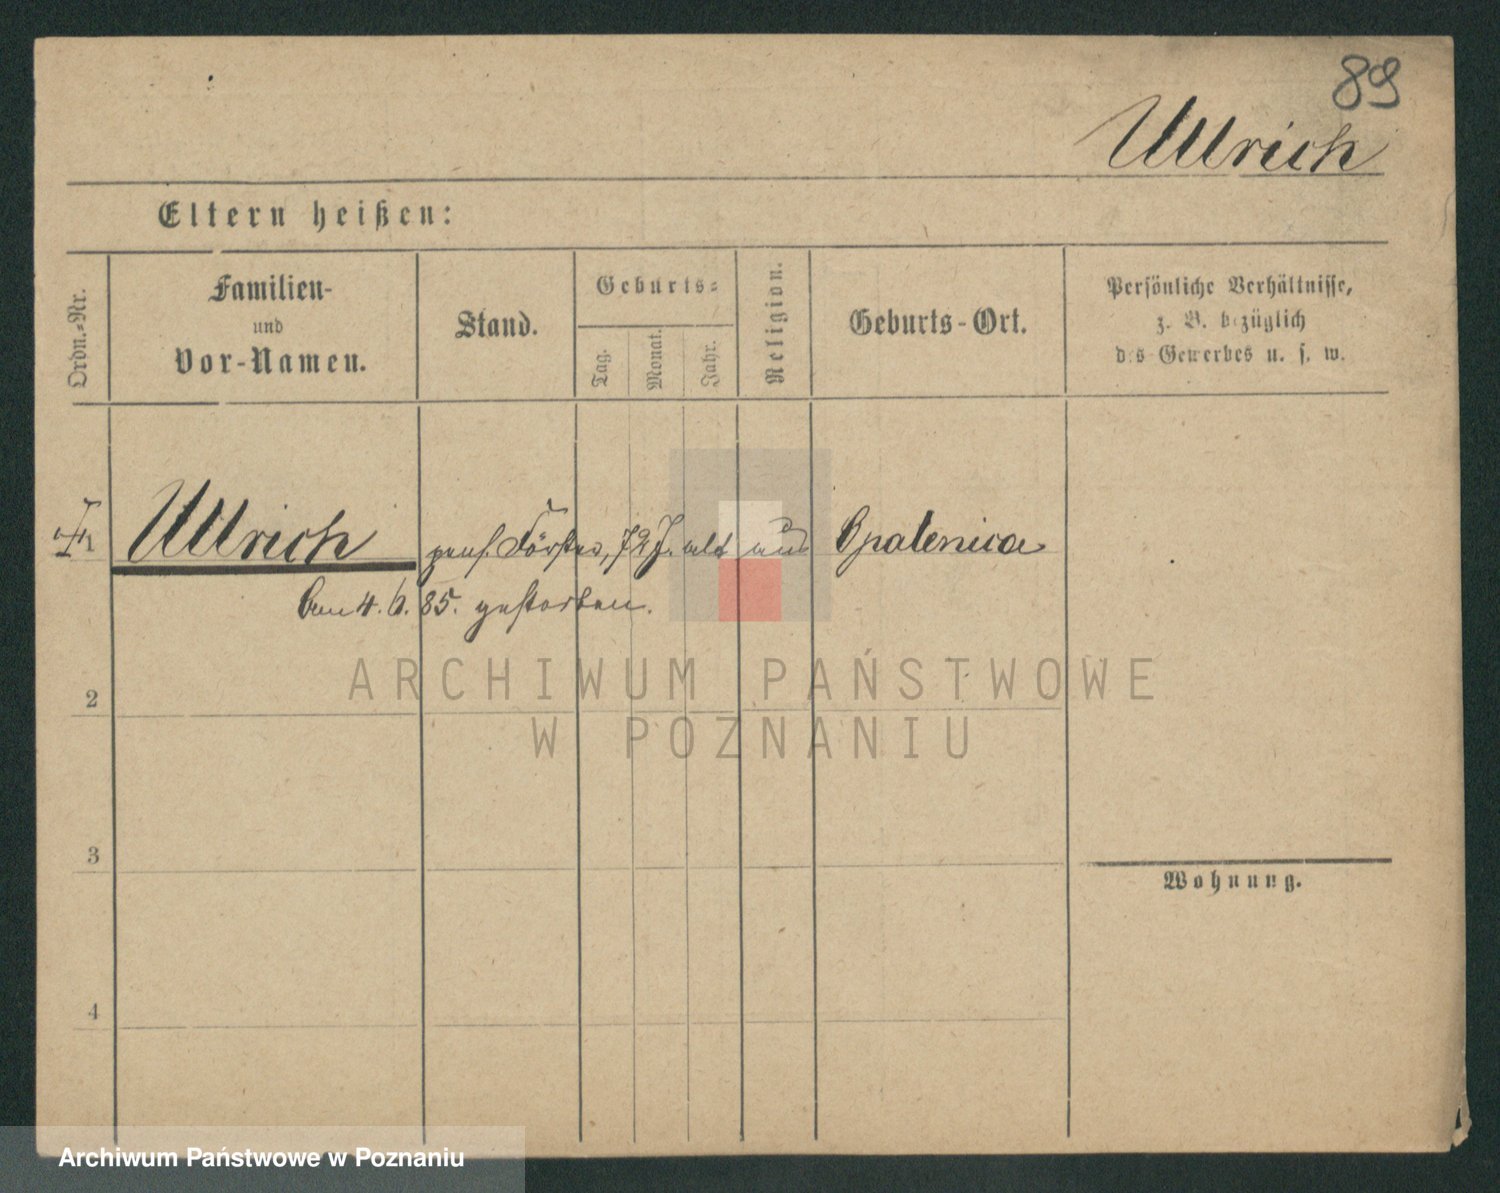 89
Ullrich
Eltern heißen:
Ordn.-Nr.
Familien-
und
Vor-Namen.
Stand.
Geburts-
Tag.
Monat.
Jahr.
Religion.
Geburts-Ort.
Persönliche Verhältnisse,
z. B. bezüglich
des Gewerbes u. s. w.
1 Ullrich pens. Förster, 72 J. alt aus Opalenica
am 4./6. 85. gestorben.
2
3
4
Wohnung.
ARCHIWUM PAŃSTWOWE
W POZNANIU
Archiwum Państwowe w Poznaniu